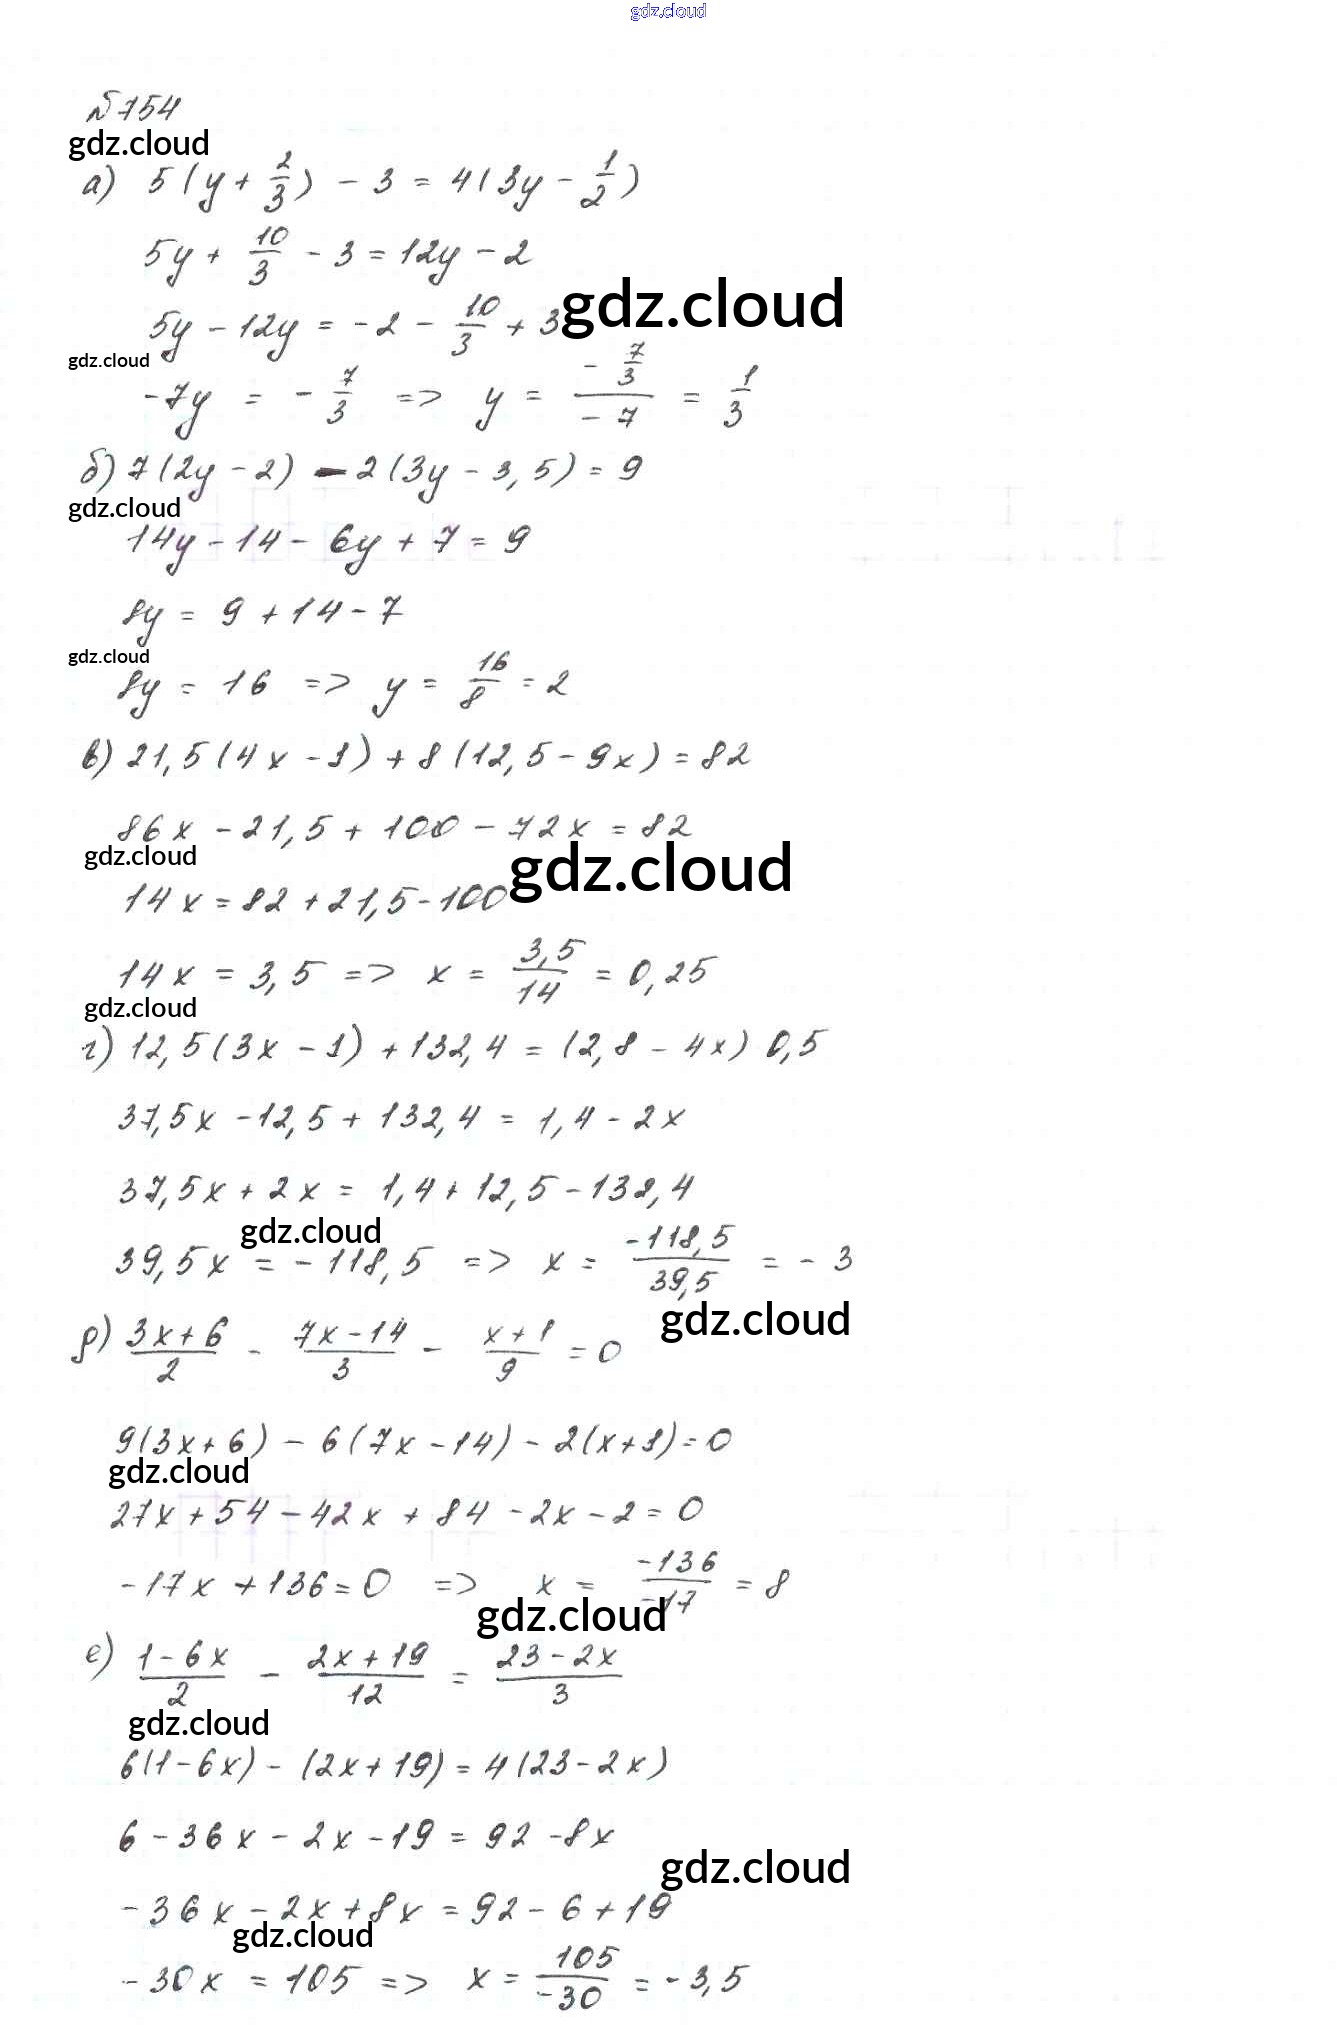 gdz.cloud
№754
gdz.cloud
а) 5(y + 2/3) - 3 = 4(3y - 1/2)
5y + 10/3 - 3 = 12y - 2
gdz.cloud
5y - 12y = -2 - 10/3 + 3
gdz.cloud
-7y = - 7/3 => y = (- 7/3)/(- 7) = 1/3
б) 7(2y - 2) - 2(3y - 3,5) = 9
gdz.cloud
14y - 14 - 6y + 7 = 9
8y = 9 + 14 - 7
gdz.cloud
8y = 16 => y = 16/8 = 2
в) 21,5(4x - 1) + 8(12,5 - 9x) = 82
86x - 21,5 + 100 - 72x = 82
gdz.cloud
gdz.cloud
14x = 82 + 21,5 - 100
14x = 3,5 => x = 3,5/14 = 0,25
gdz.cloud
г) 12,5(3x - 1) + 132,4 = (2,8 - 4x) 0,5
37,5x - 12,5 + 132,4 = 1,4 - 2x
37,5x + 2x = 1,4 + 12,5 - 132,4
gdz.cloud
39,5x = - 118,5 => x = -118,5/39,5 = - 3
gdz.cloud
д) (3x + 6)/2 - (7x - 14)/3 - (x + 1)/9 = 0
9(3x + 6) - 6(7x - 14) - 2(x + 1) = 0
gdz.cloud
27x + 54 - 42x + 84 - 2x - 2 = 0
-17x + 136 = 0 => x = -136/-17 = 8
gdz.cloud
е) (1 - 6x)/2 - (2x + 19)/12 = (23 - 2x)/3
gdz.cloud
6(1 - 6x) - (2x + 19) = 4(23 - 2x)
6 - 36x - 2x - 19 = 92 - 8x
gdz.cloud
- 36x - 2x + 8x = 92 - 6 + 19
gdz.cloud
- 30x = 105 => x = 105/-30 = - 3,5